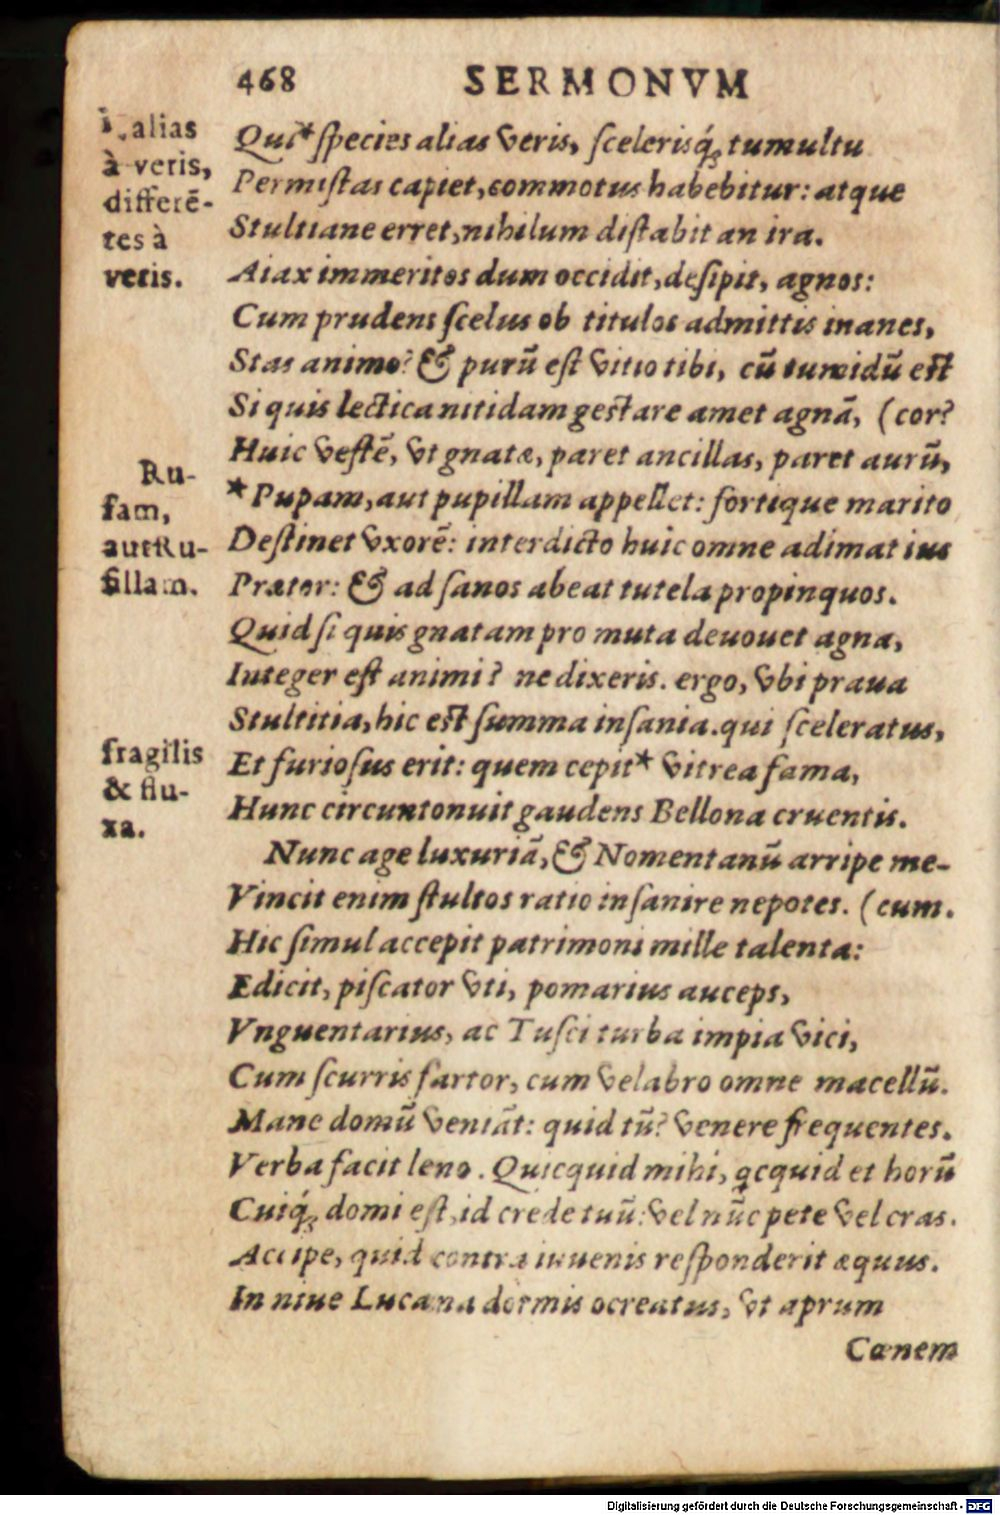 468 SERMONVM
alias
à veris,
differẽ-
tes à
veris.
Qui* species alias veris, scelerisq́; tumultu
Permistas capiet, commotus habebitur: atque
Stultiane erret, nihilum distabit an ira.
Aiax immeritos dum occidit, desipit, agnos:
Cum prudens scelus ob titulos admittis inanes,
Stas animo? & purũ est vitio tibi, cũ tumidũ est
Si quis lectica nitidam gestare amet agnã, (cor?
Huic vestẽ, vt gnatæ, paret ancillas, paret aurũ,
Ru-
fam,
aut Ru-
fillam.
*Pupam, aut pupillam appellet: fortique marito
Destinet vxorẽ: interdicto huic omne adimat ius
Prætor: & ad sanos abeat tutela propinquos.
Quid si quis gnatam pro muta deuouet agna,
Integer est animi? ne dixeris. ergo, vbi praua
Stultitia, hic est summa insania. qui sceleratus,
fragilis
& flu-
xa.
Et furiosus erit: quem cepit* vitrea fama,
Hunc circuntonuit gaudens Bellona cruentis.
Nunc age luxuriã, & Nomentanũ arripe me-
Vincit enim stultos ratio insanire nepotes. (cum.
Hic simul accepit patrimoni mille talenta:
Edicit, piscator vti, pomarius auceps,
Vnguentarius, ac Tusci turba impia vici,
Cum scurris fartor, cum velabro omne macellũ.
Mane domũ veniãt: quid tũ? venere frequentes.
Verba facit leno. Quicquid mihi, qcquid et horũ
Cuiq́; domi est, id crede tuũ: vel nũc pete vel cras.
Accipe, quid contra iuuenis responderit æquus.
In niue Lucana dormis ocreatus, vt aprum
Cænem
Digitalisierung gefördert durch die Deutsche Forschungsgemeinschaft - DFG